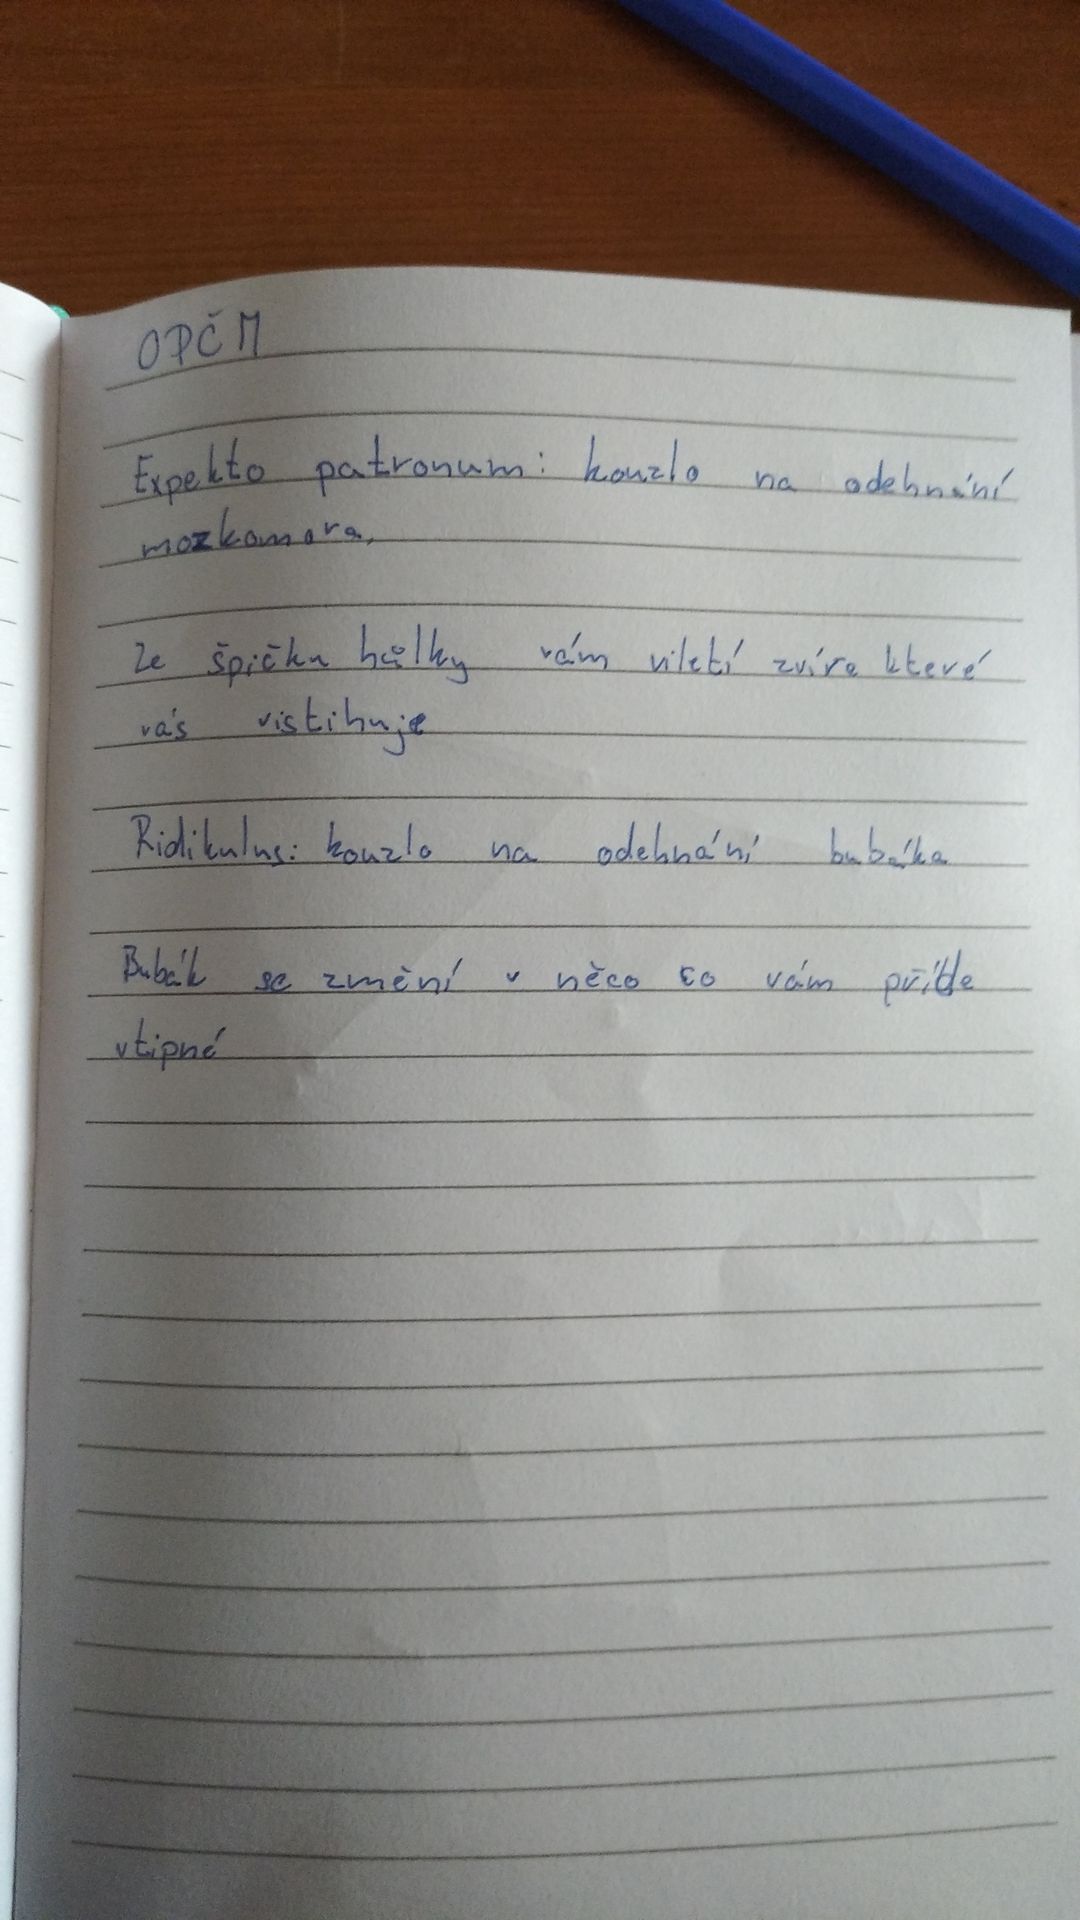 OPČM
Expekto patronum: kouzlo na odehnání
mozkomora.
Ze špičku hůlky vám viletí zvíře které
vás vistihuje
Ridikulus: kouzlo na odehnání bubáka
Bubák se změní v něco co vám příde
vtipné